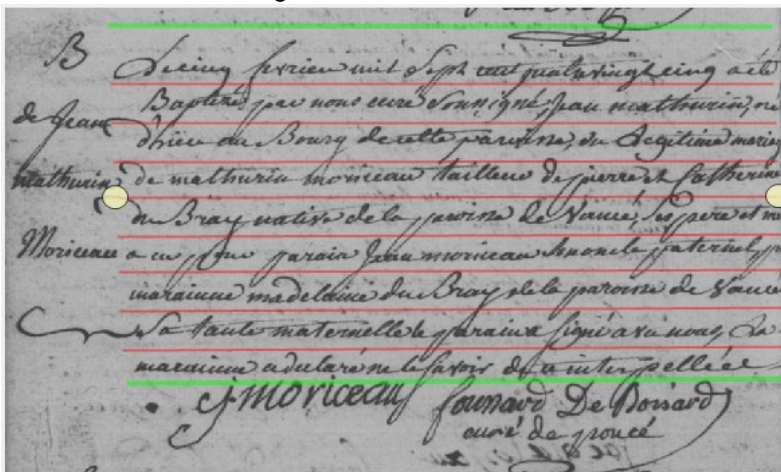 B
de Jean
mathurin
Moriceau
Le cinq fevrier mil sept cent quatrevingt cinq a été
Baptisé par nous curé soussigné, Jean mathurin, né
d'hier au Bourg de cette paroisse, du Legitime mariag
de mathurin moriceau tailleur de pierre et Catherine
du Bray native de la paroisse de Vancé, ses pere et m
a eu pour parain Jean moriceau son oncle paternel, p
maraine madelaine du Bray de la paroisse de Vancé
Sa tante maternelle le parain a signé avec nous, La
maraine a declaré ne le savoir de ce interpellée
J. moriceau
De Boisard
curé de poncé